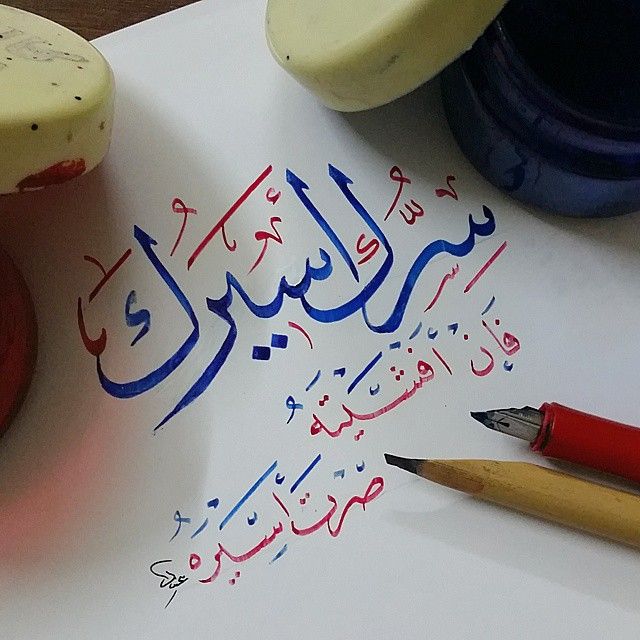 سِرُّكَ أَسِيرُكَ
فَإِنْ أَفْشَيْتَهُ
صِرْتَ أَسِيرَهُ